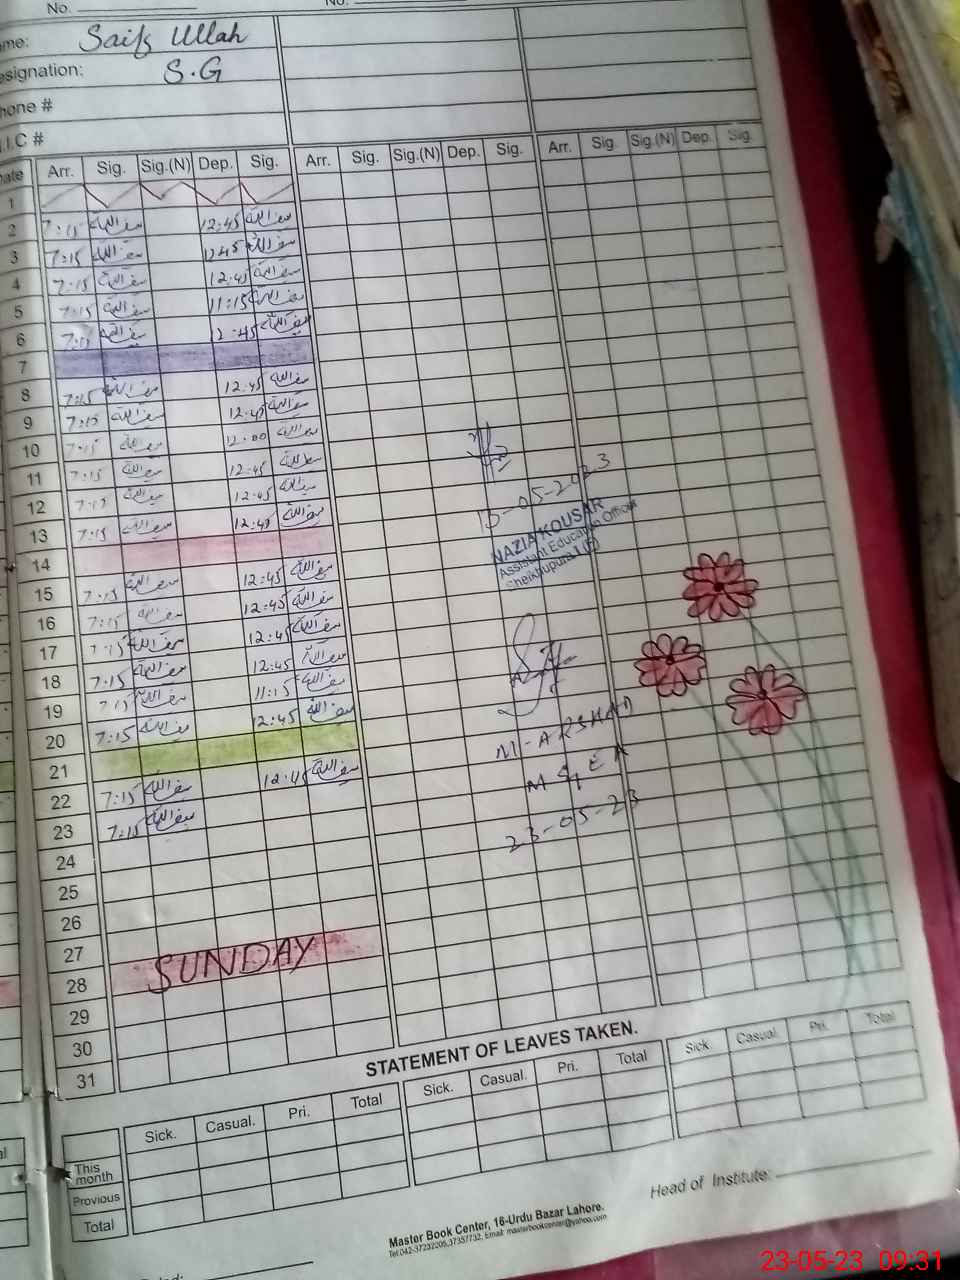 No.
No.
Saif Ullah
esignation: S.G
hone #
I.C #
ate Arr. Sig. Sig.(N) Dep. Sig. Arr. Sig. Sig.(N) Dep. Sig. Arr. Sig. Sig.(N) Dep. Sig.
1
2 7:15 سیف اللہ 12:45 سیف اللہ
3 7:15 سیف اللہ 12:45 سیف اللہ
4 7:15 سیف اللہ 12:45 سیف اللہ
5 7:15 سیف اللہ 11:15 سیف اللہ
6 7:15 سیف اللہ 12:45 سیف اللہ
7
8 7:15 سیف اللہ 12:45 سیف اللہ
9 7:15 سیف اللہ 12:45 سیف اللہ
10 7:15 سیف اللہ 12:00 سیف اللہ
11 7:15 سیف اللہ 12:45 سیف اللہ
12 7:15 سیف اللہ 12:45 سیف اللہ
13 7:15 سیف اللہ 12:45 سیف اللہ
14
15 7:15 سیف اللہ 12:45 سیف اللہ
16 7:15 سیف اللہ 12:45 سیف اللہ
17 7:15 سیف اللہ 12:45 سیف اللہ
18 7:15 سیف اللہ 12:45 سیف اللہ
19 7:15 سیف اللہ 11:15 سیف اللہ
20 7:15 سیف اللہ 12:45 سیف اللہ
21
22 7:15 سیف اللہ 12:45 سیف اللہ
23 7:15 سیف اللہ
24
25
26
27
28 SUNDAY
29
30
31
13-05-2023
NAZIA KOUSAR
Assistant Education Officer
Sheikhupura
M-ARSHAD
MEA
23-05-23
STATEMENT OF LEAVES TAKEN.
Sick. Casual. Pri. Total Sick. Casual. Pri. Total Sick. Casual. Pri. Total
This month
Previous
Total
Head of Institute:
Master Book Center, 16-Urdu Bazar Lahore.
Tel:042-37232205,37357732, Email: masterbookcenter@yahoo.com
23-05-23 09:31